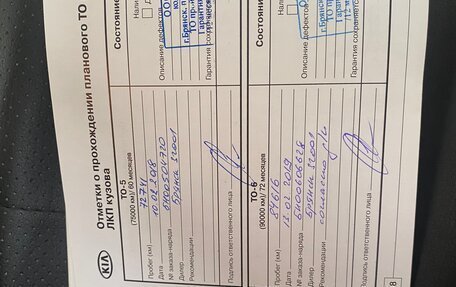 KIA
Отметки о прохождении планового ТО
ЛКП кузова
ТО-5
(75000 км)/ 60 месяцев
Пробег (км) 72741
Дата 10.02.2018
№ заказа-наряда
Дилер Брянск 32001
Рекомендации
Подпись ответственного лица
Состояние
Нали
Описание дефектов
г.Брянск, п
ТО про
Гаранти
Гарантия сохраняется
ТО-6
(90000 км)/ 72 месяцев
Пробег (км) 84616
Дата 13.02.2019
№ заказа-наряда
Дилер Брянск 32001
Рекомендации согласно з/н
Подпись ответственного лица
Состояние
Нали
Описание дефектов
г.Брянск
ТО
Гарантия сохраняется
8